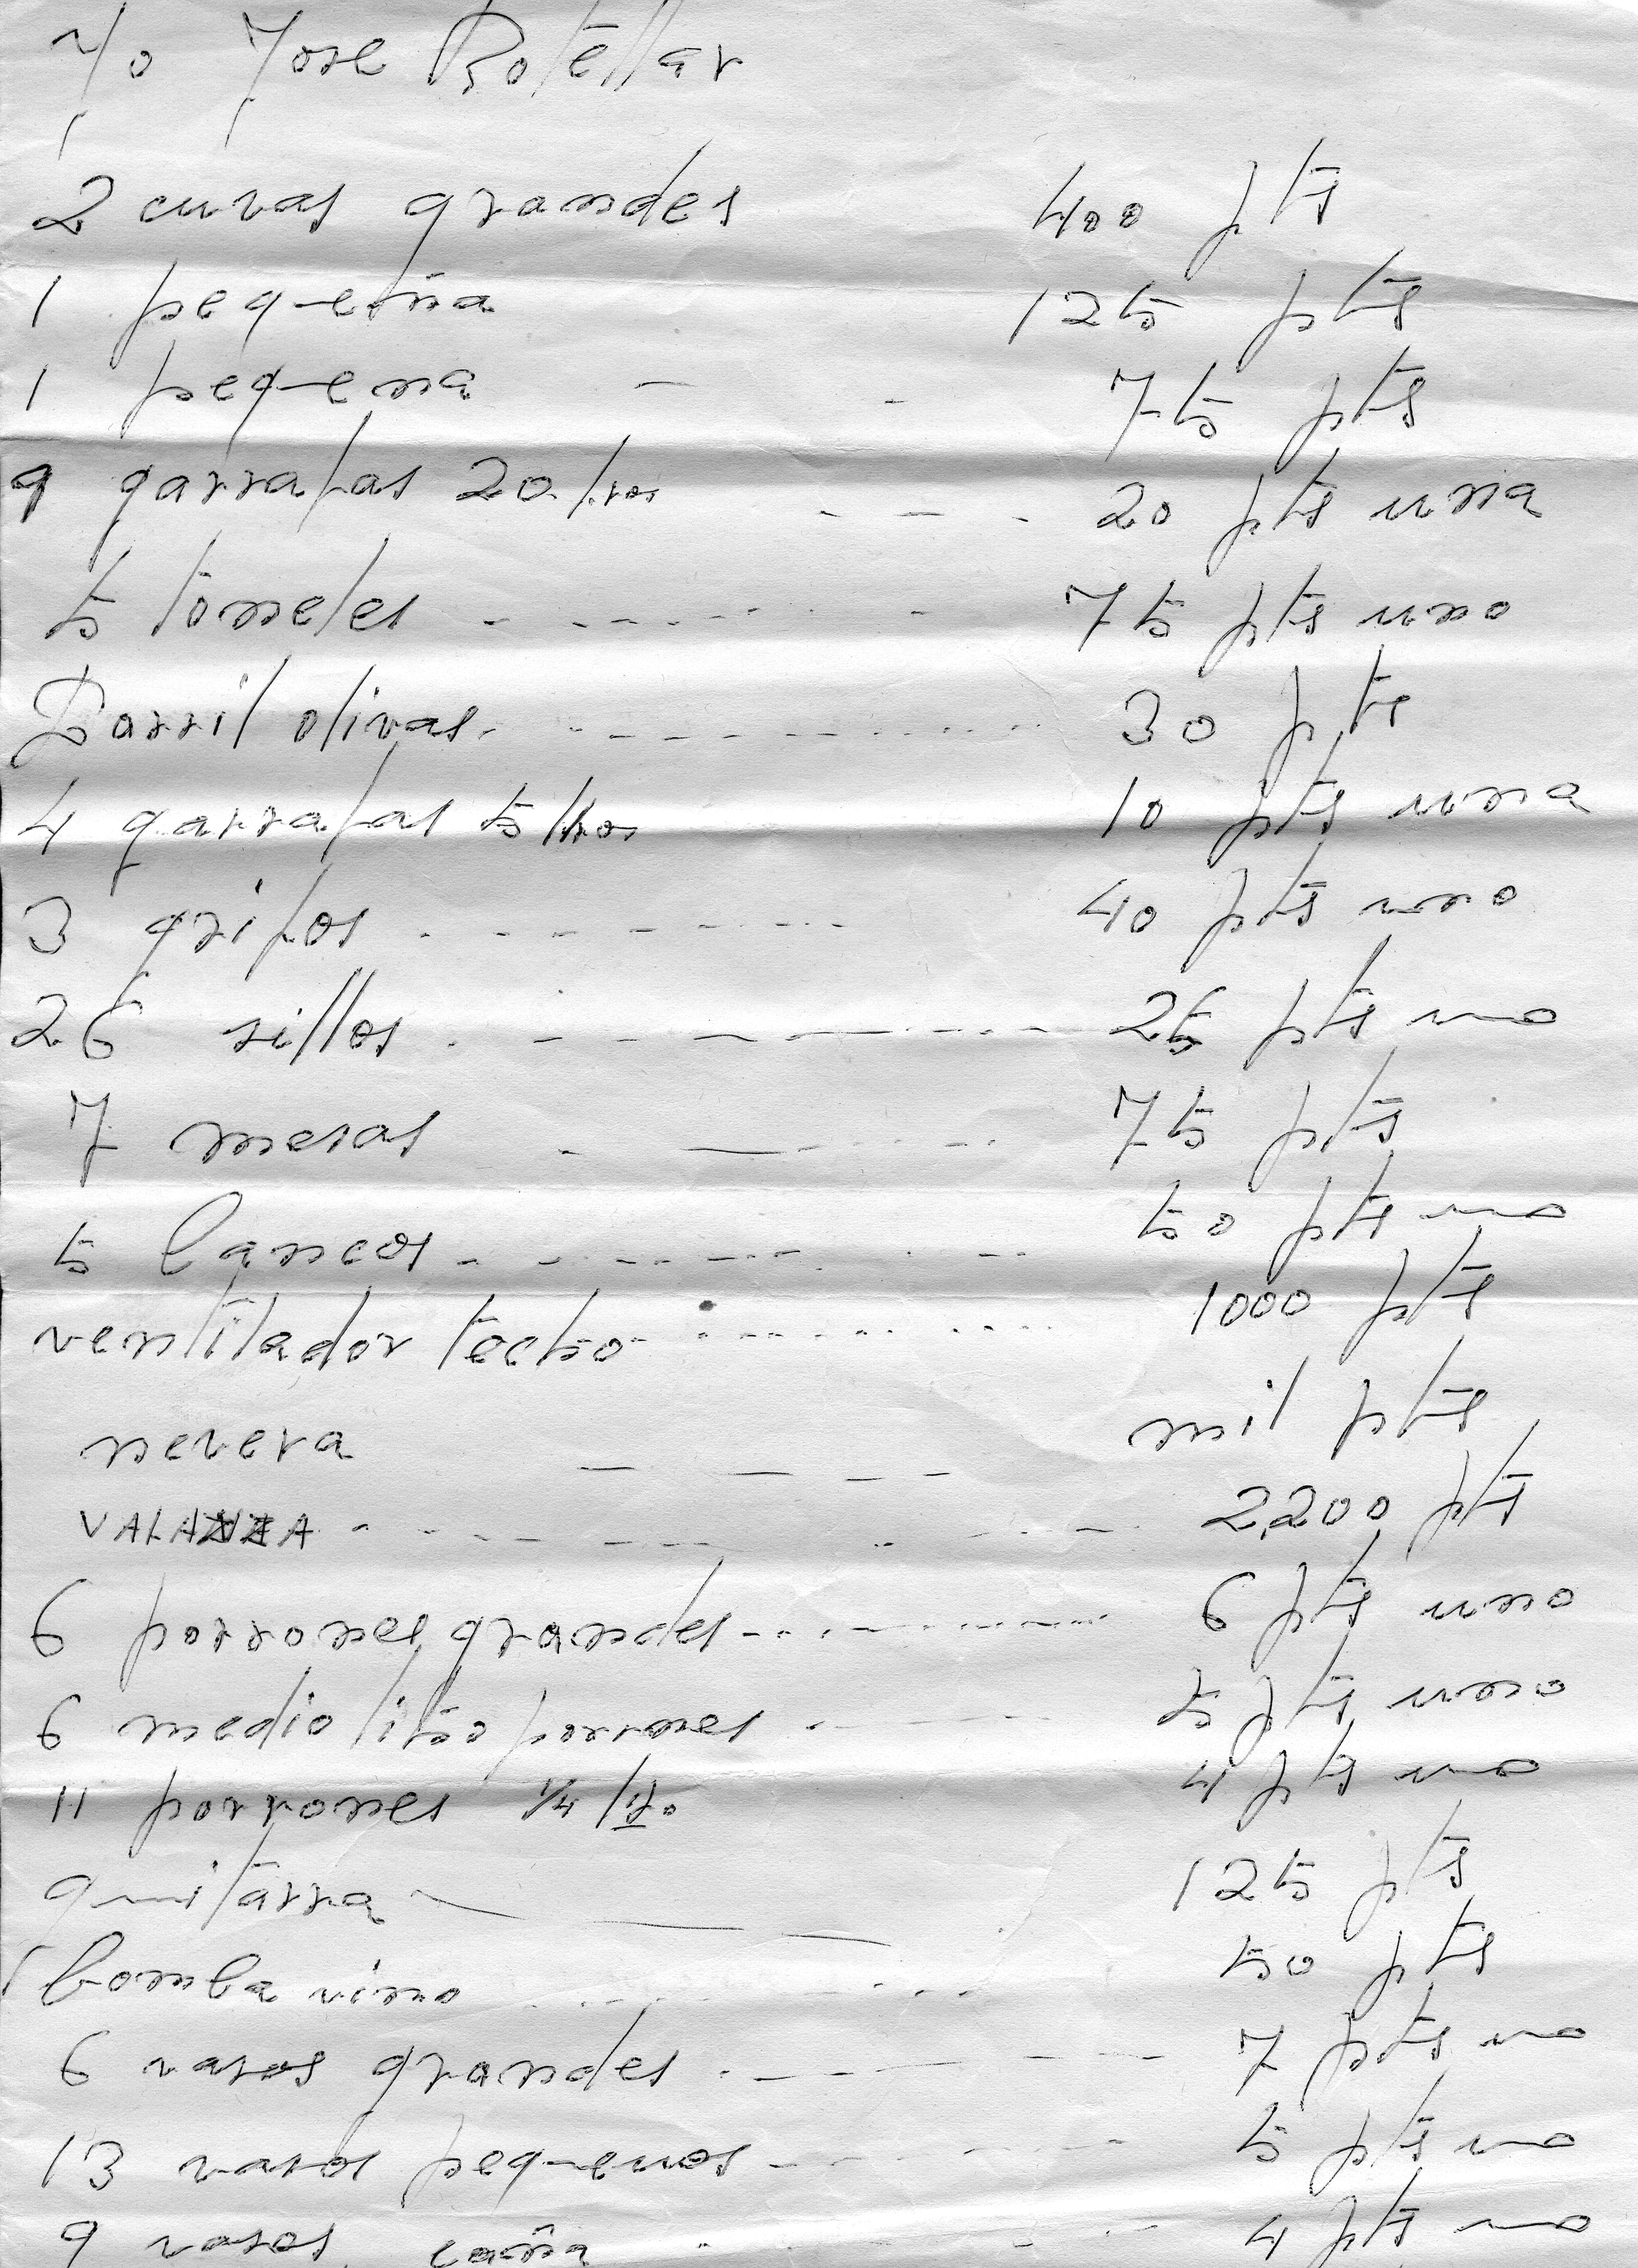 Yo Jose Rotellar
2 cuvas grandes 400 pts
1 pequeña 125 pts
1 pequena - - 75 pts
9 garrafas 20 ltros - - - 20 pts una
5 toneles - - - - - - - 75 pts uno
Barril olivas. - - - - - - - - - 30 pts
4 garrafas 5 ltros 10 pts una
3 grifos - - - - - - - - 40 pts uno
26 sillos . - - - - - - - 25 pts uno
7 mesas - - - - - 75 pts
5 bancos - - - - - - - - 50 pts uno
ventilador techo - - - - - - - - 1000 pts
nevera - - - - mil pts
VALANZA - - - - - - - - 2,200 pts
6 porrones grandes - - - - - - - - 6 pts uno
6 medio litro porrones - - - - 5 pts uno
11 porrones 1/4 lto 4 pts uno
guitarra - - - 125 pts
1 bomba vino - - - - - - - 50 pts
6 vasos grandes - - - - - - - 7 pts uno
13 vasos pequenos - - - - - - 5 pts uno
9 vasos caña - - - - 4 pts uno